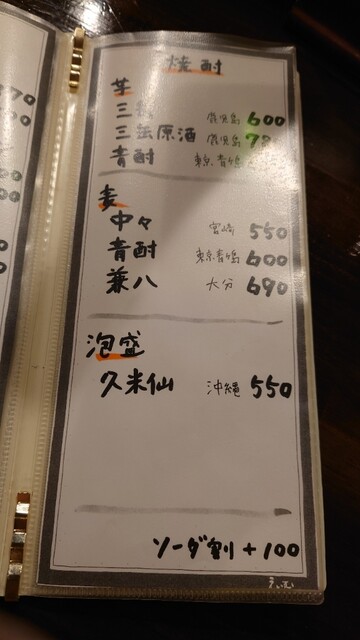 焼酎
芋
三岳 鹿児島 600
三岳原酒 鹿児島
青酎 東京青ヶ島
麦
中々 宮崎 550
青酎 東京青ヶ島 600
兼八 大分 690
泡盛
久米仙 沖縄 550
ソーダ割 +100